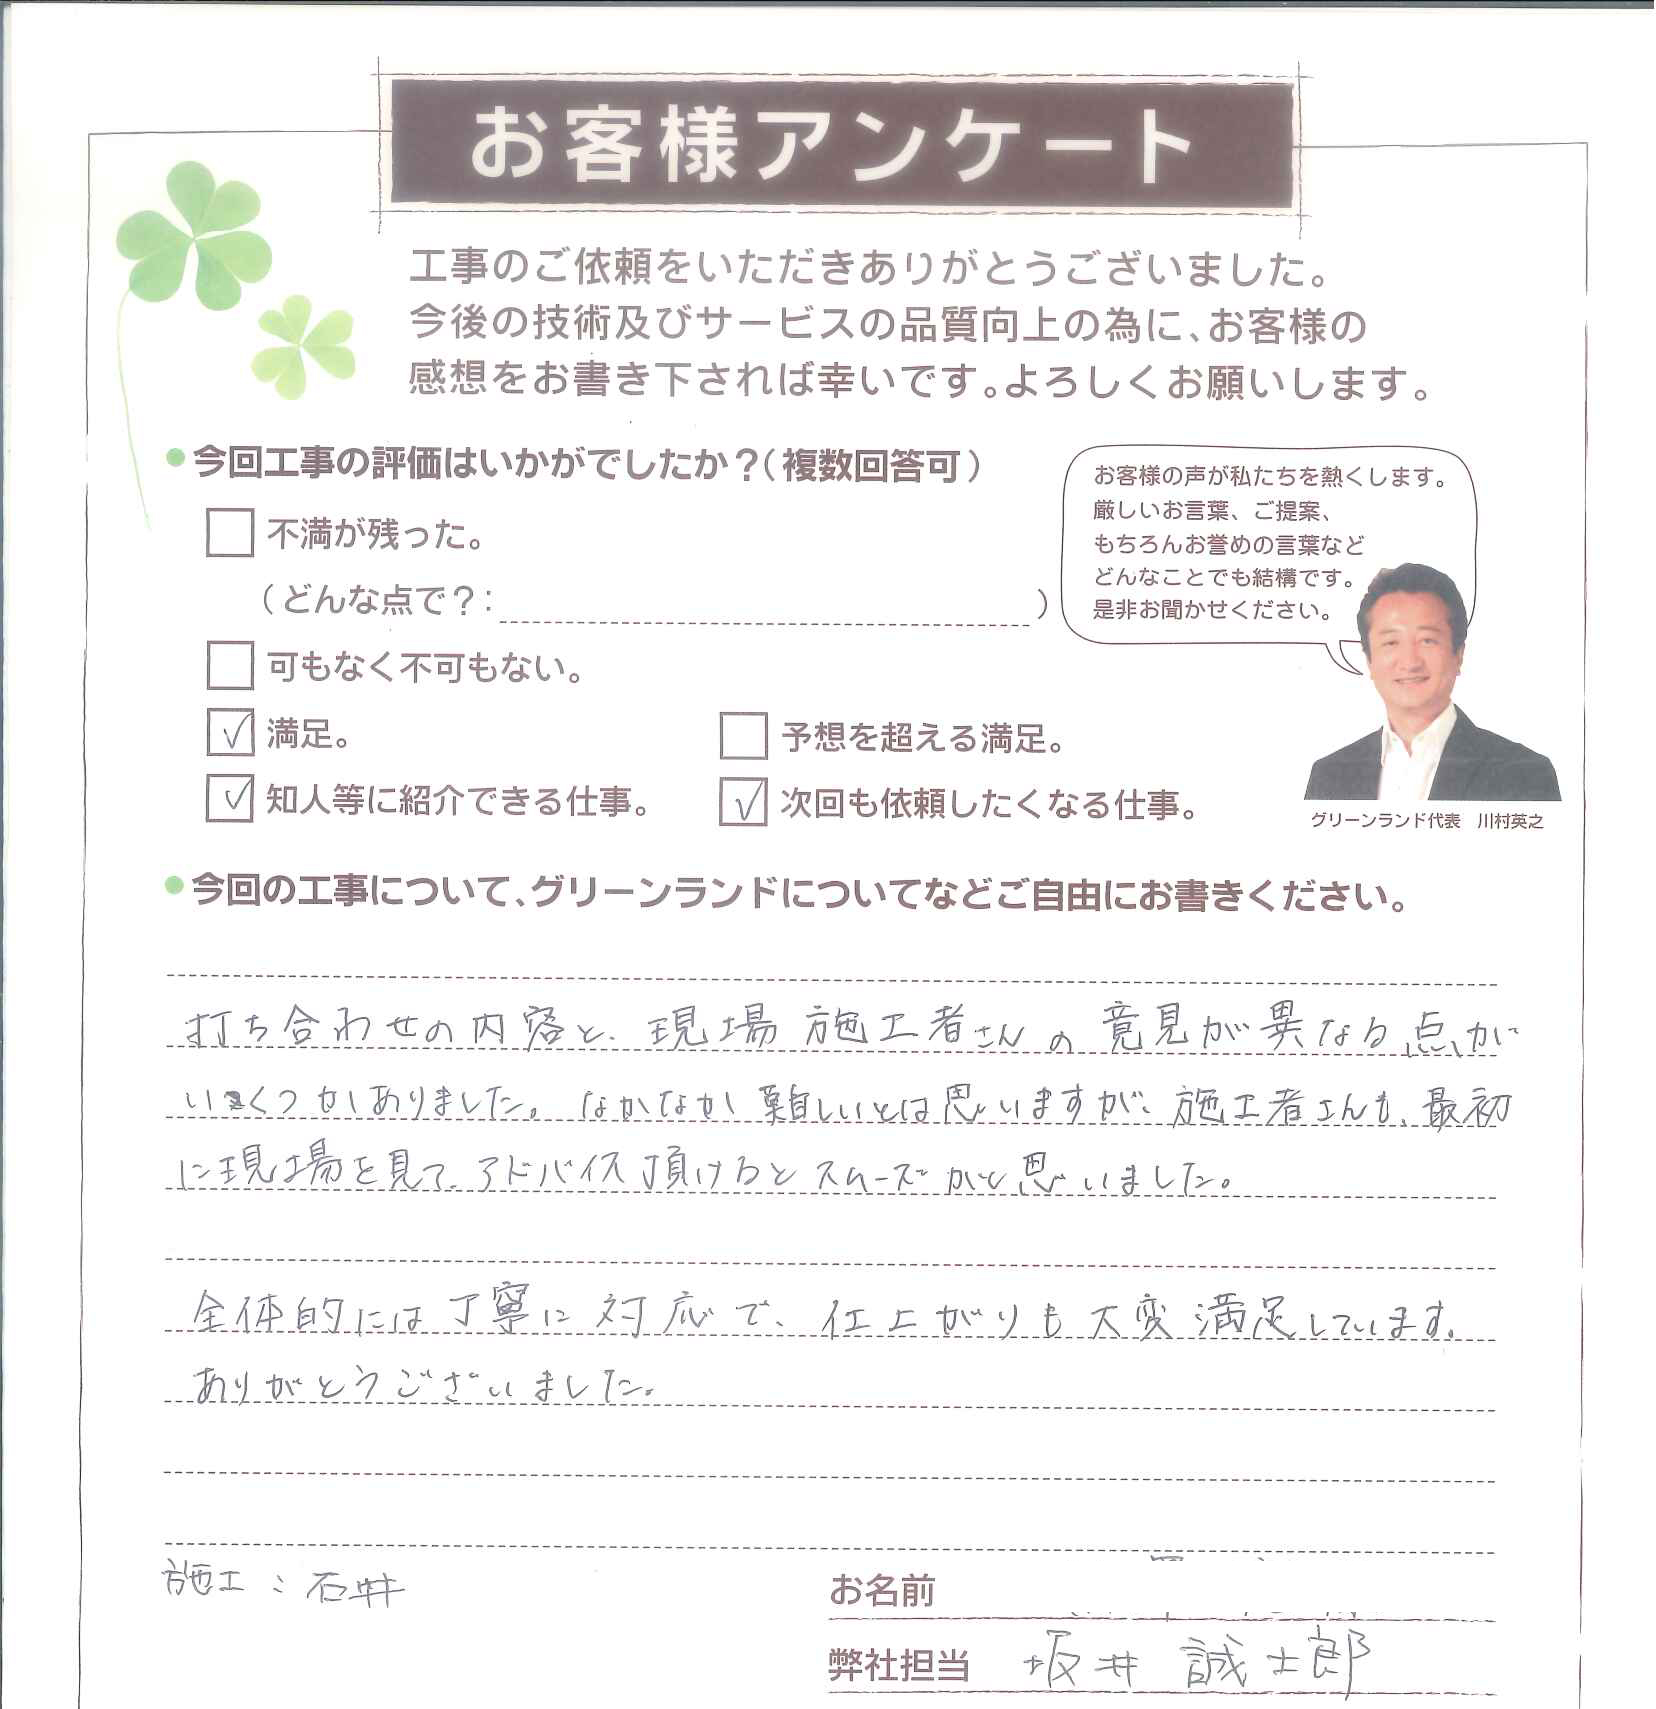 お客様アンケート
工事のご依頼をいただきありがとうございました。
今後の技術及びサービスの品質向上の為に、お客様の
感想をお書き下されば幸いです。よろしくお願いします。
●今回工事の評価はいかがでしたか？(複数回答可)
□ 不満が残った。
(どんな点で？: )
□ 可もなく不可もない。
☑ 満足。
□ 予想を超える満足。
☑ 知人等に紹介できる仕事。
☑ 次回も依頼したくなる仕事。
お客様の声が私たちを熱くします。
厳しいお言葉、ご提案、
もちろんお誉めの言葉など
どんなことでも結構です。
是非お聞かせください。
グリーンランド代表 川村英之
●今回の工事について、グリーンランドについてなどご自由にお書きください。
打ち合わせの内容と、現場施工者さんの意見が異なる点が
いくつかありました。なかなか難しいとは思いますが、施工者さんも、最初
に現場を見て、アドバイス頂けるとスムーズかと思いました。
全体的には丁寧に対応で、仕上がりも大変満足しています。
ありがとうございました。
施工：石井
お名前
弊社担当 坂井 誠士郎